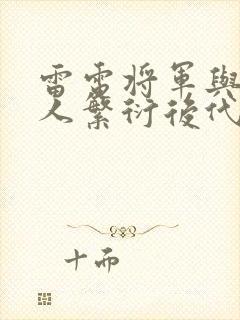 雷雷将軍與
人繁衍後代
十而